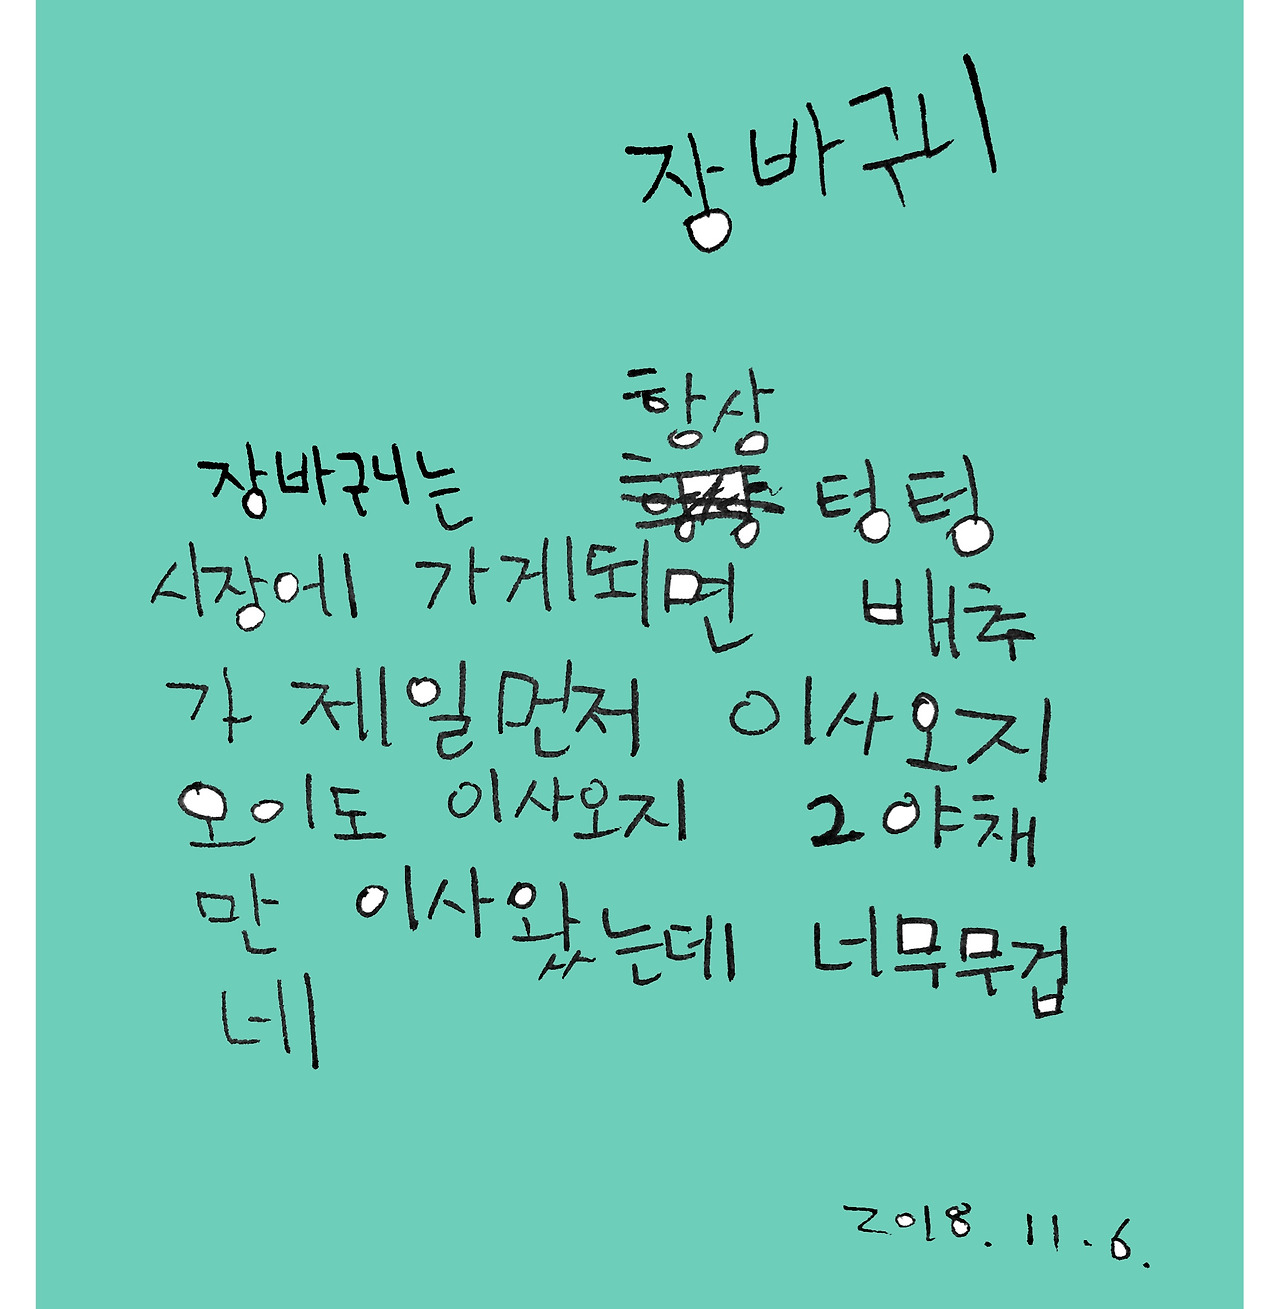 장바구니
항상
장바구니는 텅텅
시장에 가게되면 배추
가 제일먼저 이사오지
오이도 이사오지 2야채
만 이사왔는데 너무무겁
네
2018. 11. 6.